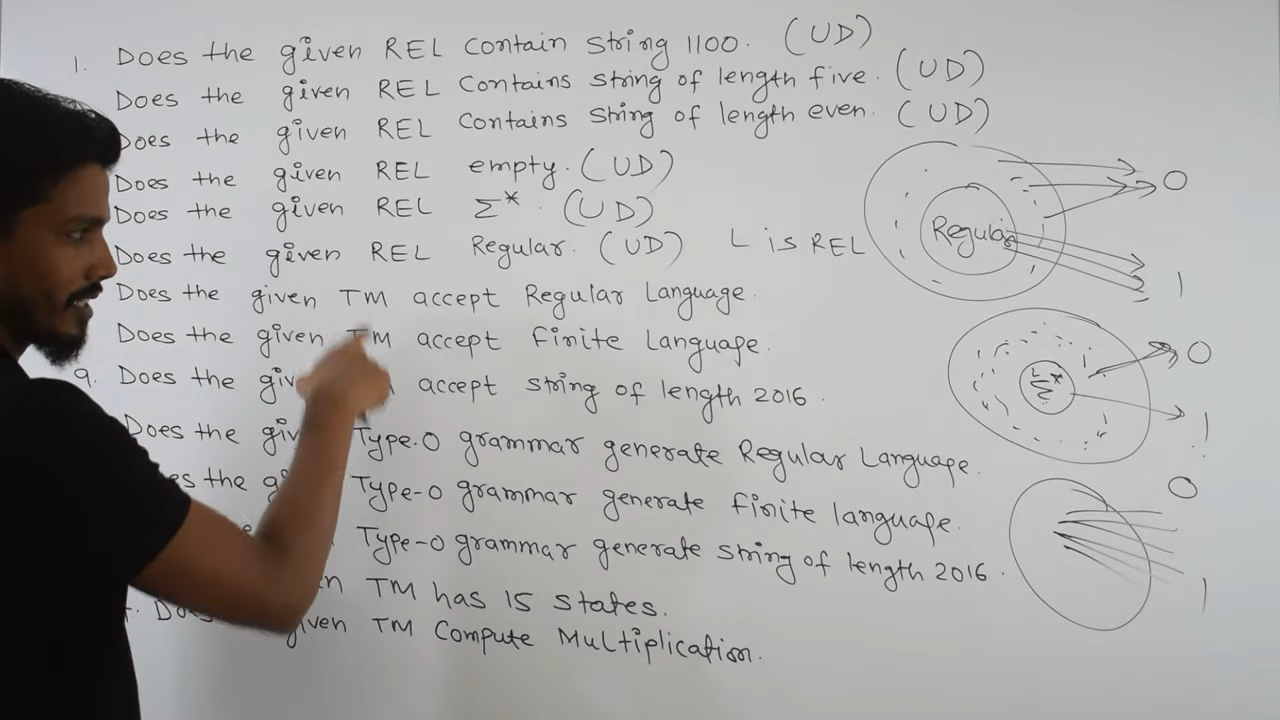 1. Does the given REL contain string 1100. (UD)
Does the given REL contains string of length five. (UD)
Does the given REL contains string of length even. (UD)
Does the given REL empty. (UD)
Does the given REL Σ*. (UD)
Does the given REL Regular. (UD) L is REL
Does the given TM accept Regular Language.
Does the given TM accept finite Language.
9. Does the giv accept string of length 2016.
Does the giv Type-0 grammar generate Regular Language.
es the g Type-0 grammar generate finite language.
Type-0 grammar generate string of length 2016.
n TM has 15 states.
Does given TM Compute Multiplication.
Regular
0
1
Σ*
0
1
0
1